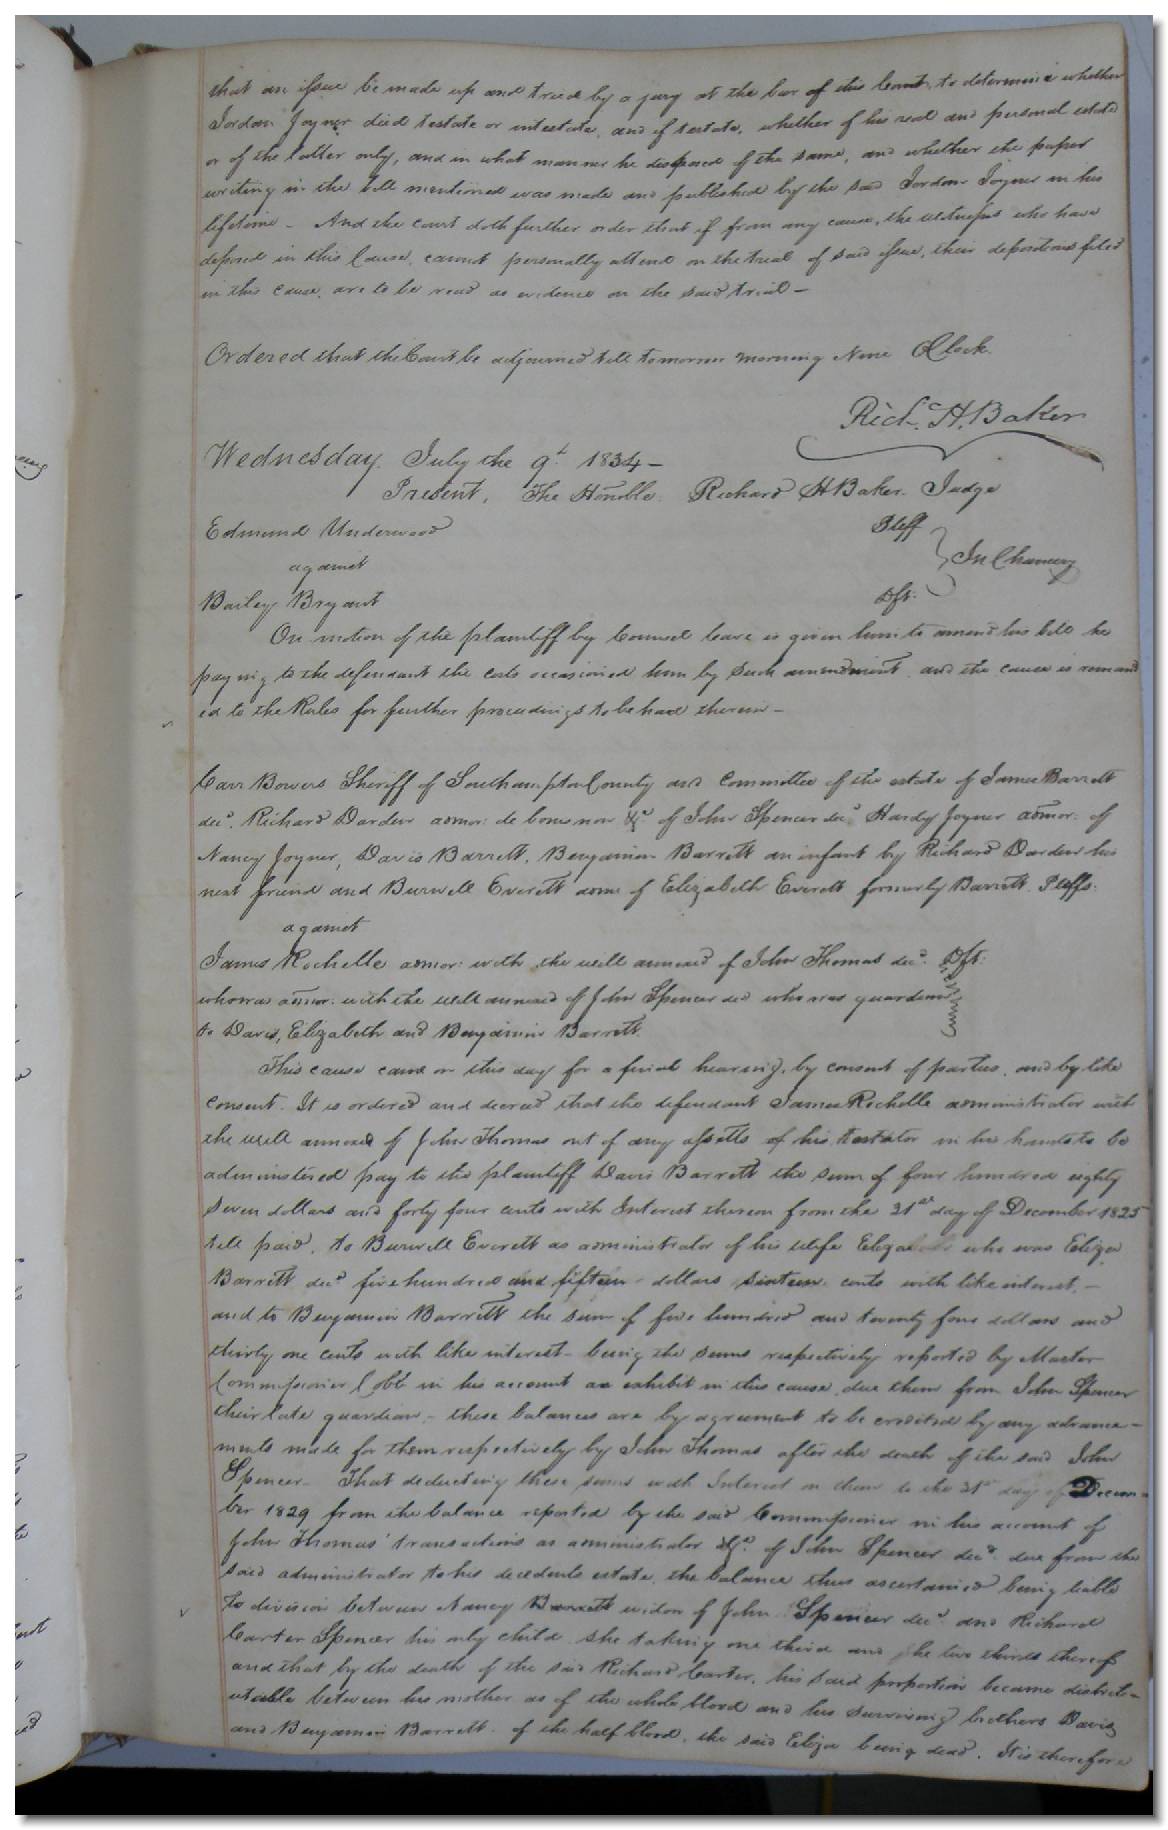 that an issue be made up and tried by a jury at the bar of this Court, to determine whether
Jordan Joyner died testate or intestate, and if testate, whether of his real and personal estate
or of the latter only, and in what manner he disposed of the same, and whether the paper
writing in the bill mentioned was made and published by the said Jordan Joyner in his
lifetime - And the court doth further order that if from any cause, the witnesses who have
deposed in this Cause, cannot personally attend on the trial of said issue, their depositions filed
in this cause, are to be read as evidence on the said trial -
Ordered that the Court be adjourned till tomorrow morning Nine OClock.
Rich. H. Baker
Wednesday. July the 9t. 1834 -
Present, The Honble. Richard H Baker. Judge
Edmund Underwood Pleff
against In Chancery
Bailey Bryant Dft.
On motion of the plaintiff by Counsel leave is given him to amend his bill he
paying to the defendant the costs occasioned him by such amendment, and the cause is remand
ed to the Rules for further proceedings to be had therein -
Carr Bowers Sheriff of Southampton County and Committee of the estate of James Barrett
decd. Richard Darden admor: de bonis non &c. of John Spencer decd. Hardy Joyner admor: of
Nancy Joyner, Davis Barrett, Benjamin Barrett an infant by Richard Darden his
next friend and Burwell Everett admr of Elizabeth Everett formerly Barrett. Pleffs:
against
James Rochelle admor: with the will annexed of John Thomas decd. Dft:
who was admor: with the will annexed of John Spencer decd who was guardian
to Davis, Elizabeth and Benjamin Barrett.
This cause came on this day for a final hearing, by consent of parties, and by like
consent. It is ordered and decreed that the defendant James Rochelle administrator with
the will annexed of John Thomas out of any assetts of his testator in his hands to be
administered pay to the plaintiff Davis Barrett the sum of four hundred eighty
seven dollars and forty four cents with Interest thereon from the 31st day of December 1825
till paid, to Burwell Everett as administrator of his wife Elizabeth who was Eliza
Barrett decd. five hundred and fifteen dollars sixteen cents with like interest, -
and to Benjamin Barrett the sum of five hundred and twenty four dollars and
thirty one cents with like interest - being the sums respectively reported by Master
Commissioner Cobb in his account an exhibit in this cause, due them from John Spencer
their late guardian, - these balances are by agreement to be credited by any advance-
ments made for them respectively by John Thomas after the death of the said John
Spencer - That deducting these sums with Interest on them to the 31st day of Decem-
ber 1829 from the balance reported by the said Commissioner in his account of
John Thomas' transactions as administrator &c. of John Spencer decd. due from the
said administrator to his decedents estate, the balance thus ascertained being liable
to division between Nancy Barrett widow of John Spencer decd. and Richard
Carter Spencer his only child she taking one third and he two thirds thereof
and that by the death of the said Richard Carter, his said proportion became distrib-
utable between his mother as of the whole blood and his surviving brothers Davis
and Benjamin Barrett. of the half blood, the said Eliza being dead. It is therefore